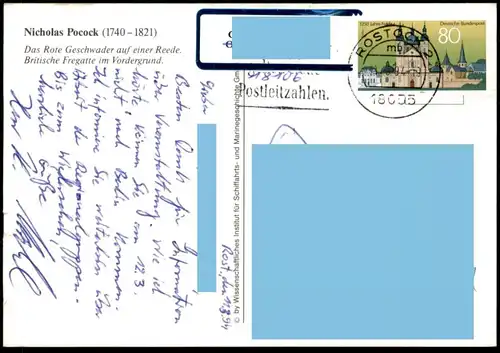 Nicholas Pocock (1740–1821)
Das Rote Geschwader auf einer Reede.
Britische Fregatte im Vordergrund.
Postleitzahlen.
ROSTOCK
18055
Deutsche Bundespost
80
© by Wissenschaftliches Institut für Schiffahrts- und Marinegeschichte Gm
Rost, den 11.3.94
Besten Dank für Information
über Veranstaltung. Wie ich
hörte, können Sie am 12.3.
nicht nach Berlin kommen.
Ich informiere Sie weiterhin über
der Regionalgruppen.
Bis zum Wiedersehen,
herzliche Grüße